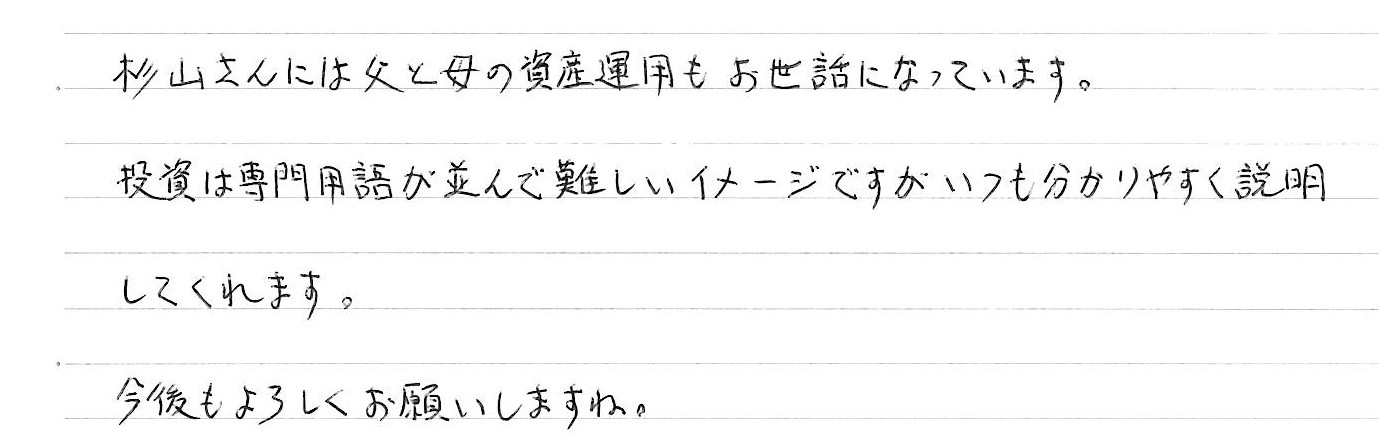 杉山さんには父と母の資産運用もお世話になっています。
投資は専門用語が並んで難しいイメージですがいつも分かりやすく説明
してくれます。
今後もよろしくお願いしますね。